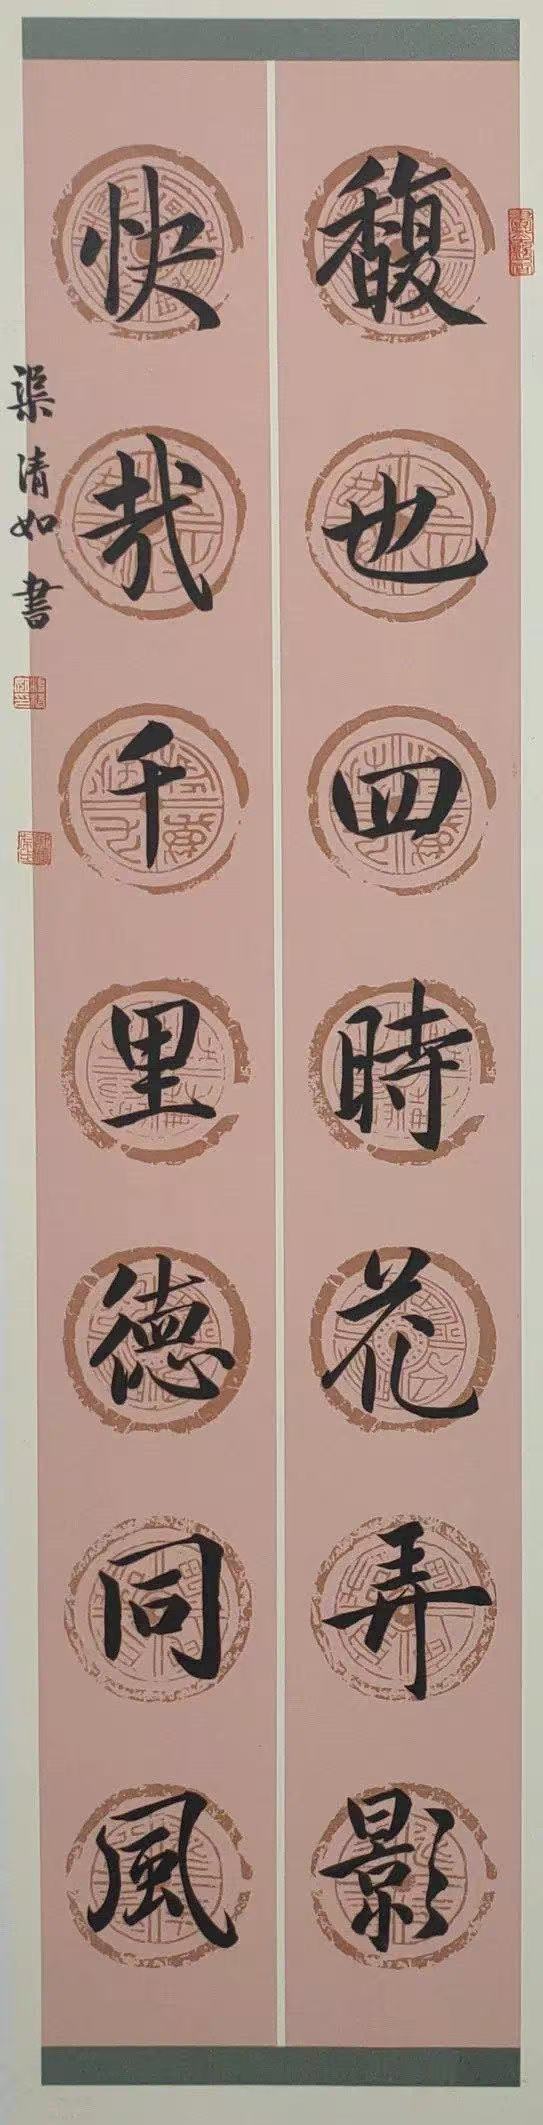 馥也四時花弄影
快哉千里德同風
渠清如書